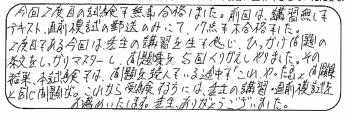 今回2度目の試験で無事合格しました。前回は、講習無しで
テキスト、直前模試の郵送のみにて、1点で不合格でした。
2度目である今回は、先生の講習を生で感じ、ひっかけ問題の
対策をしっかりマスターし、問題集を5回くりかえしやりました。その
結果、本試験では、問題を読んでいる途中で「これ、やった!」と問題集
と同じ問題が。これから受験する方には、先生の講習・直前模試を
お薦めいたします。先生、ありがとうございました。